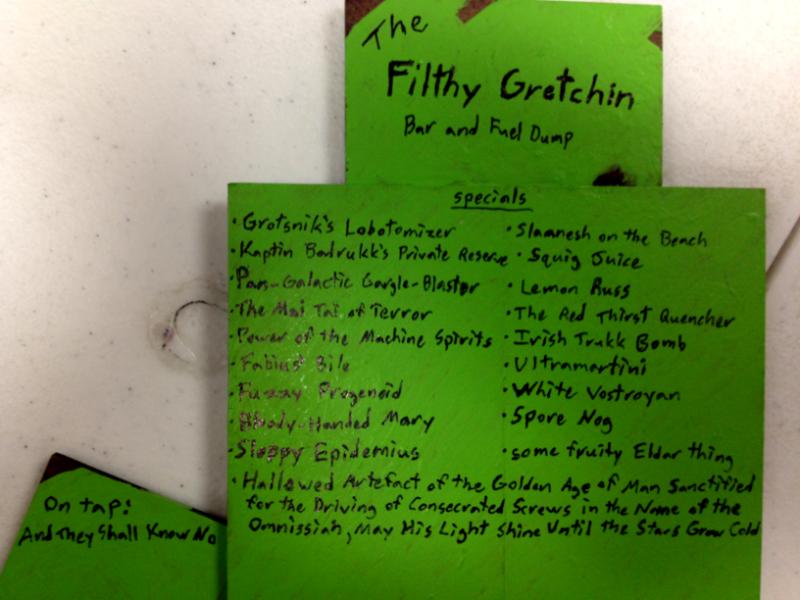 The
Filthy Gretchin
Bar and Fuel Dump
specials
• Grotsnik's Lobotomizer
• Kaptin Badrukk's Private Reserve
• Pan-Galactic Gargle-Blaster
• The Mai Tai of Terror
• Power of the Machine Spirits
• Fabius' Bile
• Fuzzy Progenoid
• Bloody-Handed Mary
• Sloppy Epidemius
• Slaanesh on the Beach
• Squig Juice
• Lemon Russ
• The Red Thirst Quencher
• Irish Trukk Bomb
• Ultramartini
• White Vostroyan
• Spore Nog
• some fruity Eldar thing
• Hallowed Artefact of the Golden Age of Man Sanctified
for the Driving of Consecrated Screws in the Name of the
Omnissiah, May His Light Shine Until the Stars Grow Cold
On tap:
And They Shall Know No